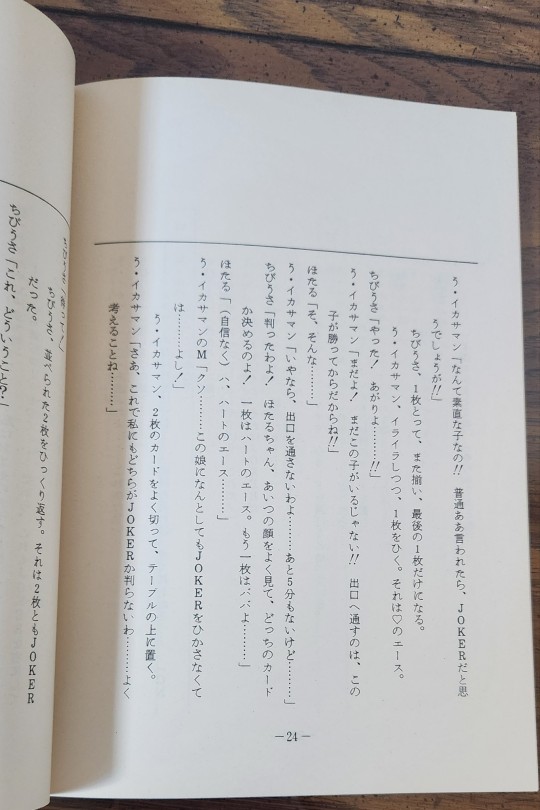 う・イカサマン「なんて素直な子なの!! 普通ああ言われたら、JOKERだと思
うでしょうが!!」
ちびうさ、1枚とって、また揃い、最後の1枚だけになる。
う・イカサマン、イライラしつつ、1枚をひく。それは♡のエース。
ちびうさ「やった! あがりよ………!!」
う・イカサマン「まだよ! まだこの子がいるじゃない!! 出口へ通すのは、この
子が勝ってからだからね!!」
ほたる「そ、そんな………」
う・イカサマン「いやなら、出口を通さないわよ………あと5分もないけど………」
ちびうさ「判ったわよ! ほたるちゃん、あいつの顔をよく見て、どっちのカード
か決めるのよ! 一枚はハートのエース。もう一枚はババよ………」
ほたる「(自信なく)ハ、ハートのエース………」
う・イカサマンのM「クソ………この娘になんとしてもJOKERをひかさなくて
は………よし!」
う・イカサマン、2枚のカードをよく切って、テーブルの上に置く。
う・イカサマン「さあ、これで私にもどちらがJOKERか判らないわ………よく
考えることね………」
—24—
ちびうさ「待って!」
ちびうさ、並べられた2枚をひっくり返す。それは2枚ともJOKER
だった。
ちびうさ「これ、どういうこと?」